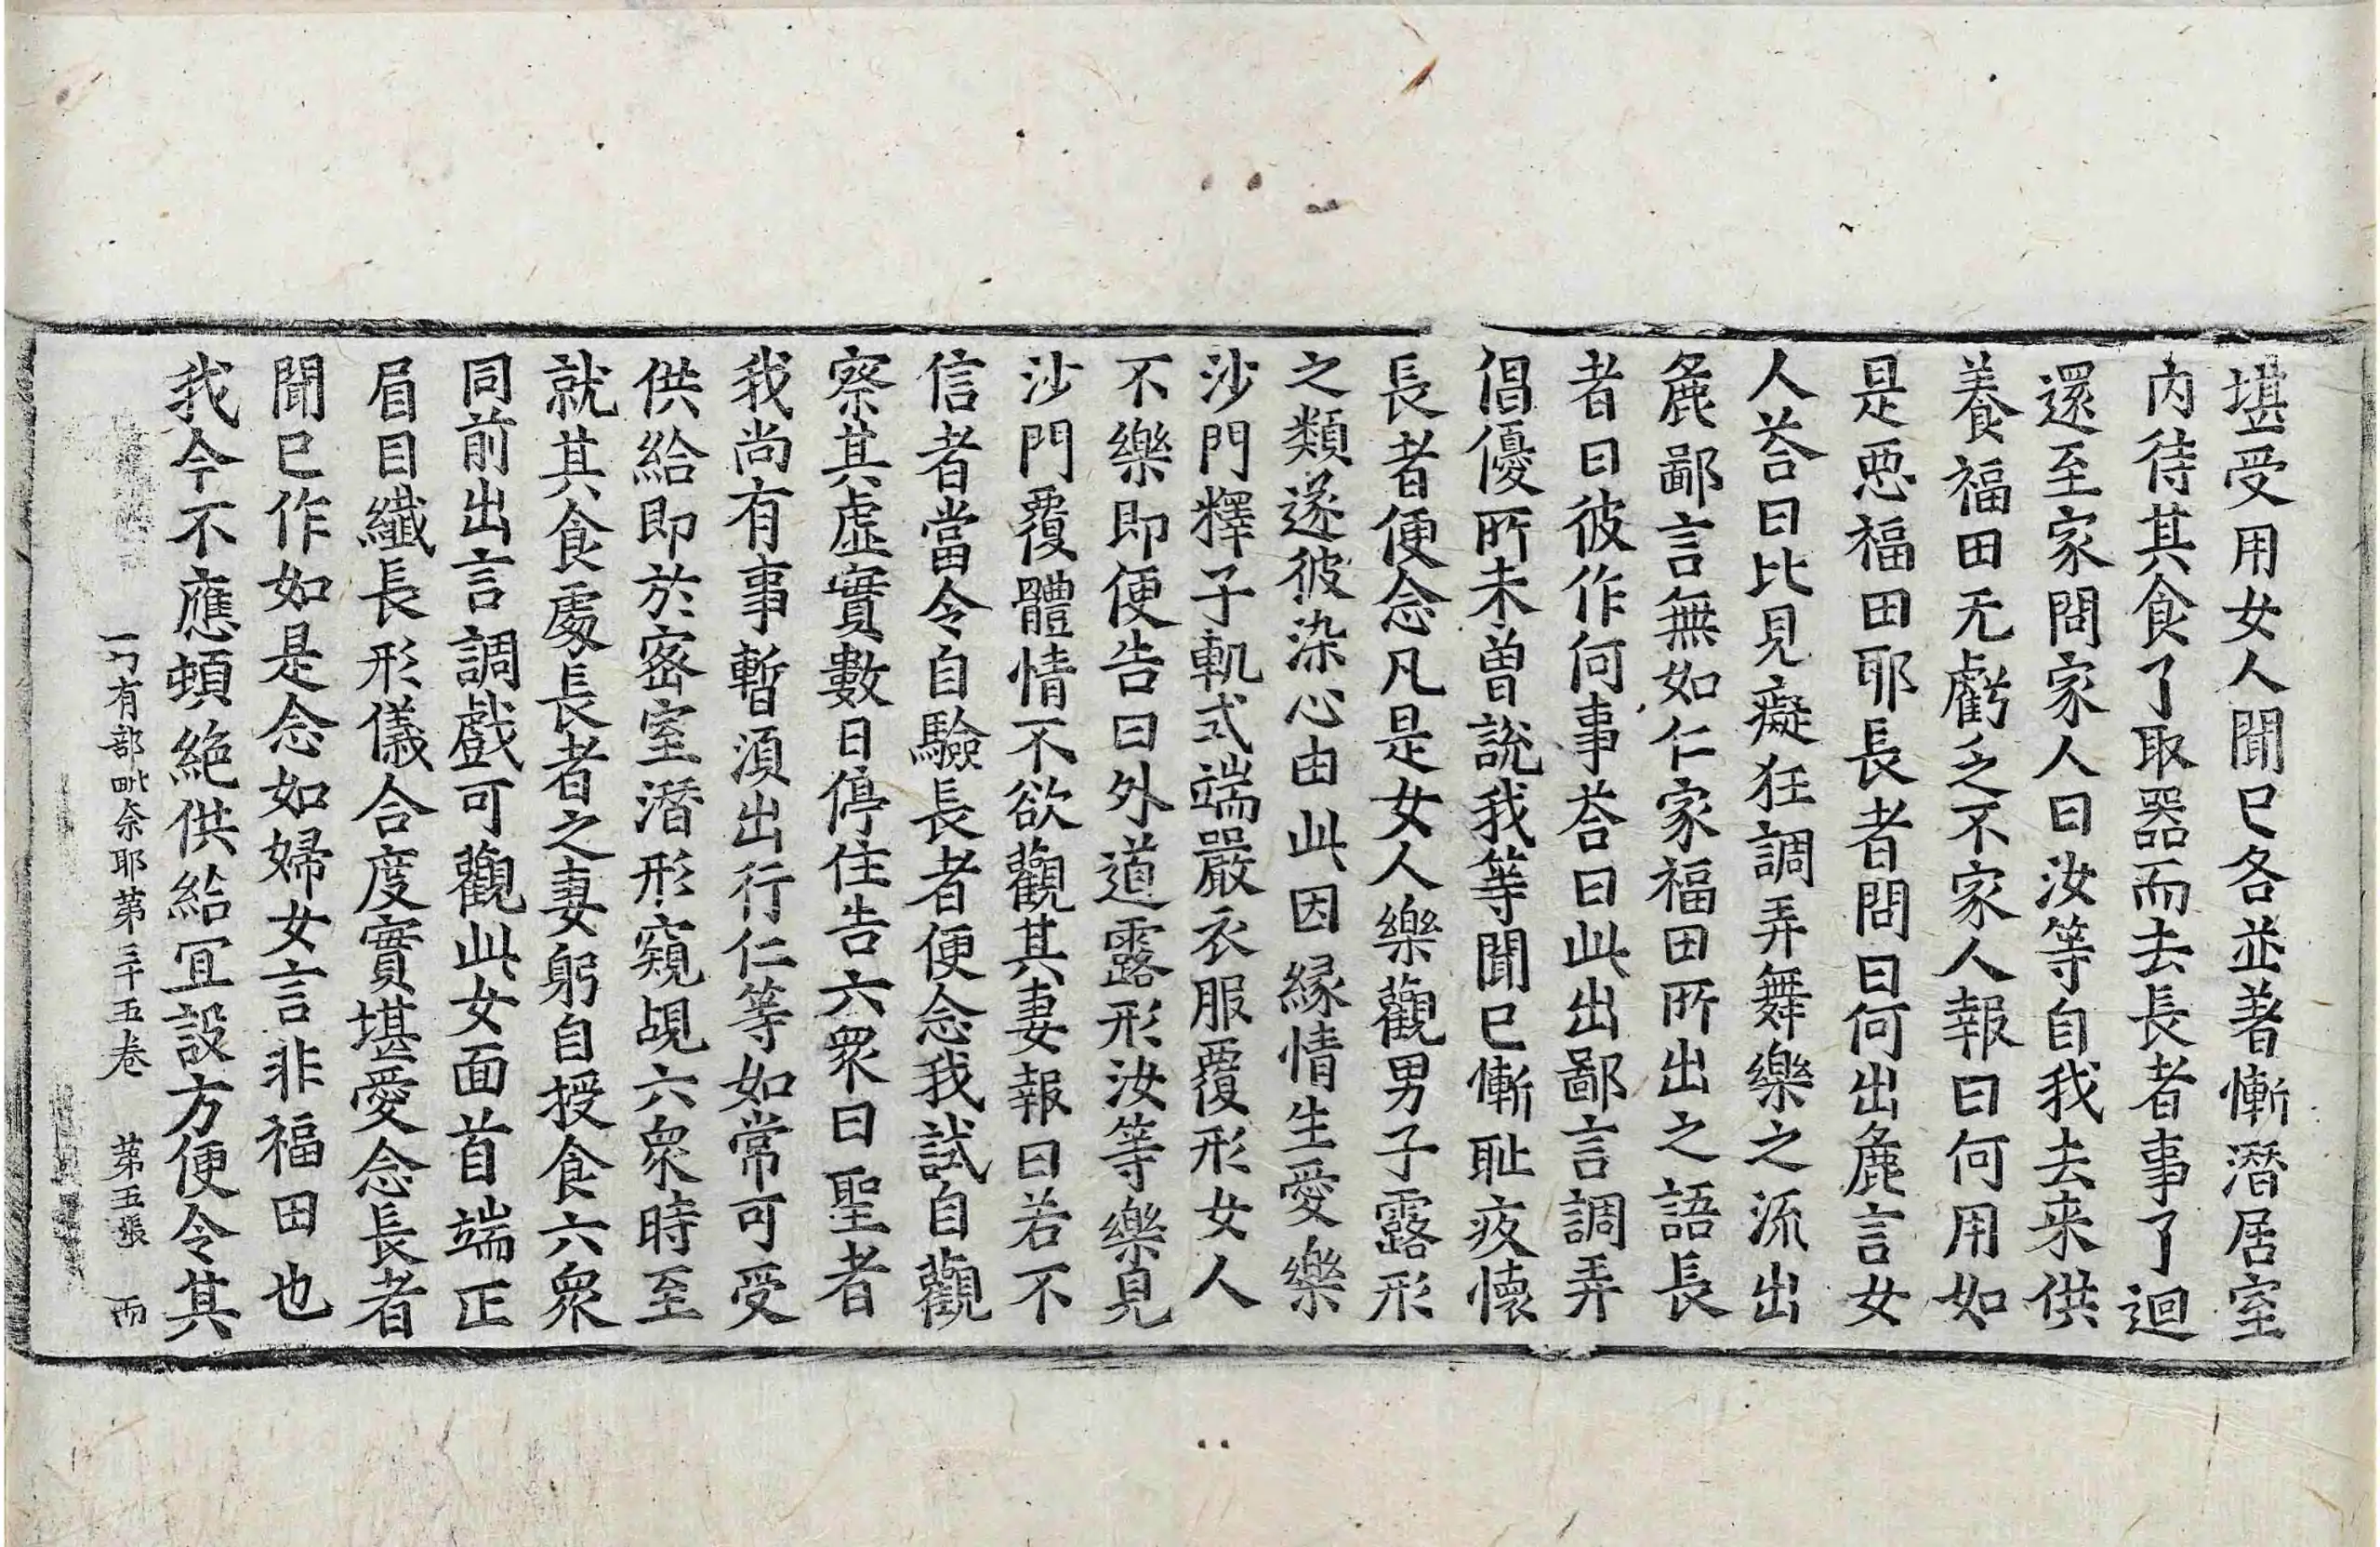 堪受用女人聞已各並著慚潛居室
內待其食了取器而去長者事了迴
還至家問家人曰汝等自我去来供
養福田无虧乏不家人報曰何用如
是惡福田耶長者問曰何出麁言女
人荅曰比見癡狂調弄舞樂之流出
麁鄙言無如仁家福田所出之語長
者曰彼作何事荅曰此出鄙言調弄
倡優所未曾說我等聞已慚耻疚懷
長者便念凡是女人樂觀男子露形
之類遂彼染心由此因緣情生愛樂
沙門釋子軌式端嚴衣服覆形女人
不樂即便告曰外道露形汝等樂見
沙門覆體情不欲觀其妻報曰若不
信者當令自驗長者便念我試自觀
察其虛實數日停住告六衆曰聖者
我尚有事暫須出行仁等如常可受
供給即於密室潛形窺覘六衆時至
就其食處長者之妻躬自授食六衆
同前出言調戲可觀此女面首端正
眉目纖長形儀合度實堪愛念長者
聞已作如是念如婦女言非福田也
我今不應頓絶供給冝設方便令其
一切有部毗奈耶第三十五卷　第五張　雨